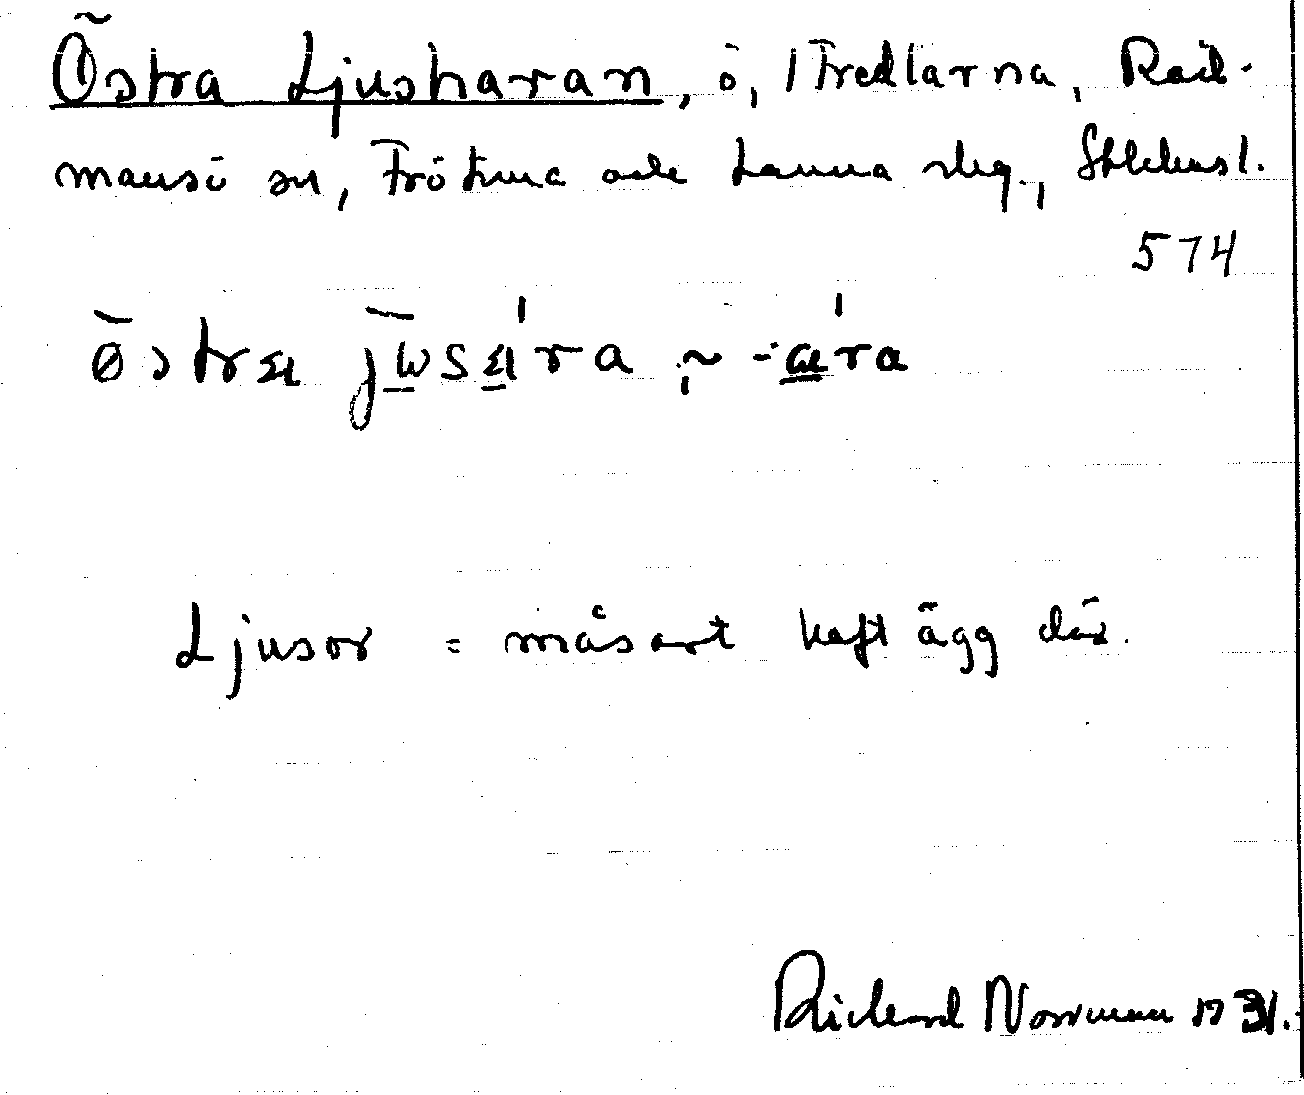 Östra Ljusharan, ö, i Fredlarna, Råd-
mansö sn, Frötuna och Länna slg., Sthlms l.
574
östra jωsæ'ra, ~ -æ'ra
Ljusor = måsart haft ägg där.
Richard Norrman 1931.